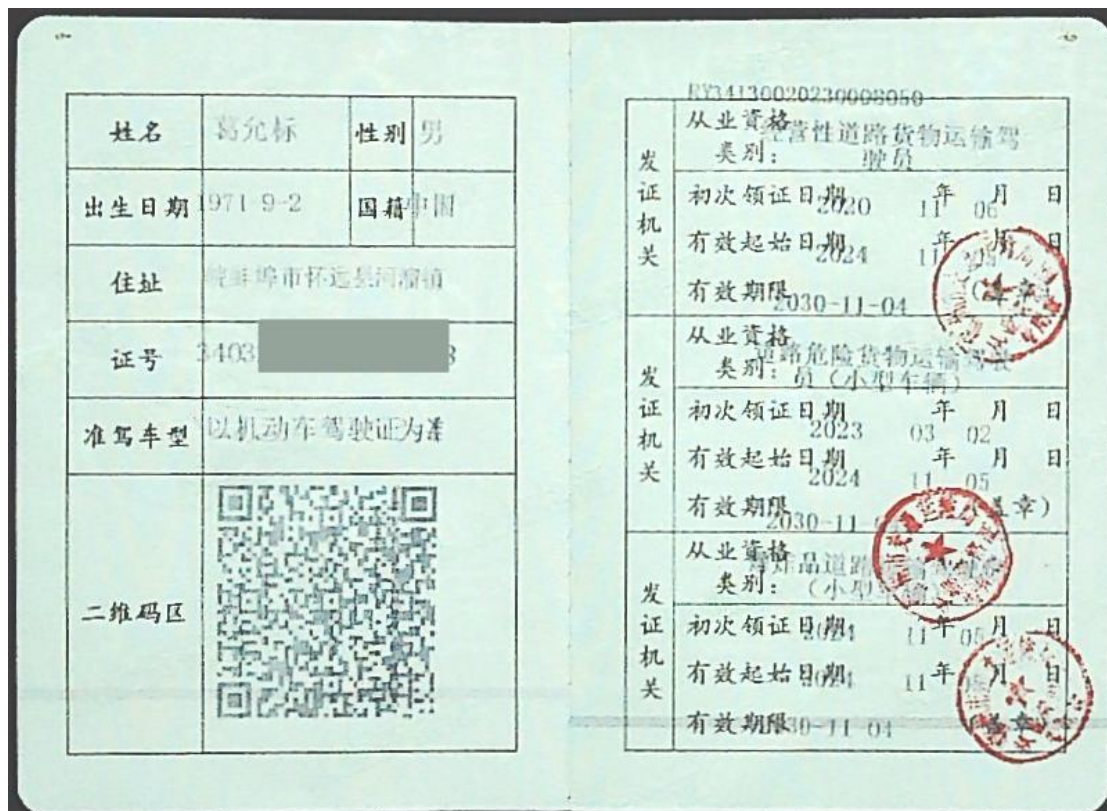 姓名 葛允标 性别 男
出生日期 1971-9-2 国籍 中国
住址 皖蚌埠市怀远县河溜镇
证号 3403
准驾车型 以机动车驾驶证为准
二维码区
RY34130020230008050
发证机关
从业资格类别: 经营性道路货物运输驾驶员
初次领证日期 2020 年 11 月 06 日
有效起始日期 2024 年 11 月 日
有效期限 2030-11-04 (盖章)
发证机关
从业资格类别: 道路危险货物运输驾驶员(小型车辆)
初次领证日期 2023 年 03 月 02 日
有效起始日期 2024 年 11 月 05 日
有效期限 2030-11 (盖章)
发证机关
从业资格类别: 品道路 (小型
初次领证日期 2024 年 11 月 05 日
有效起始日期 2024 年 11 月 日
有效期限 2030-11-04 (盖章)